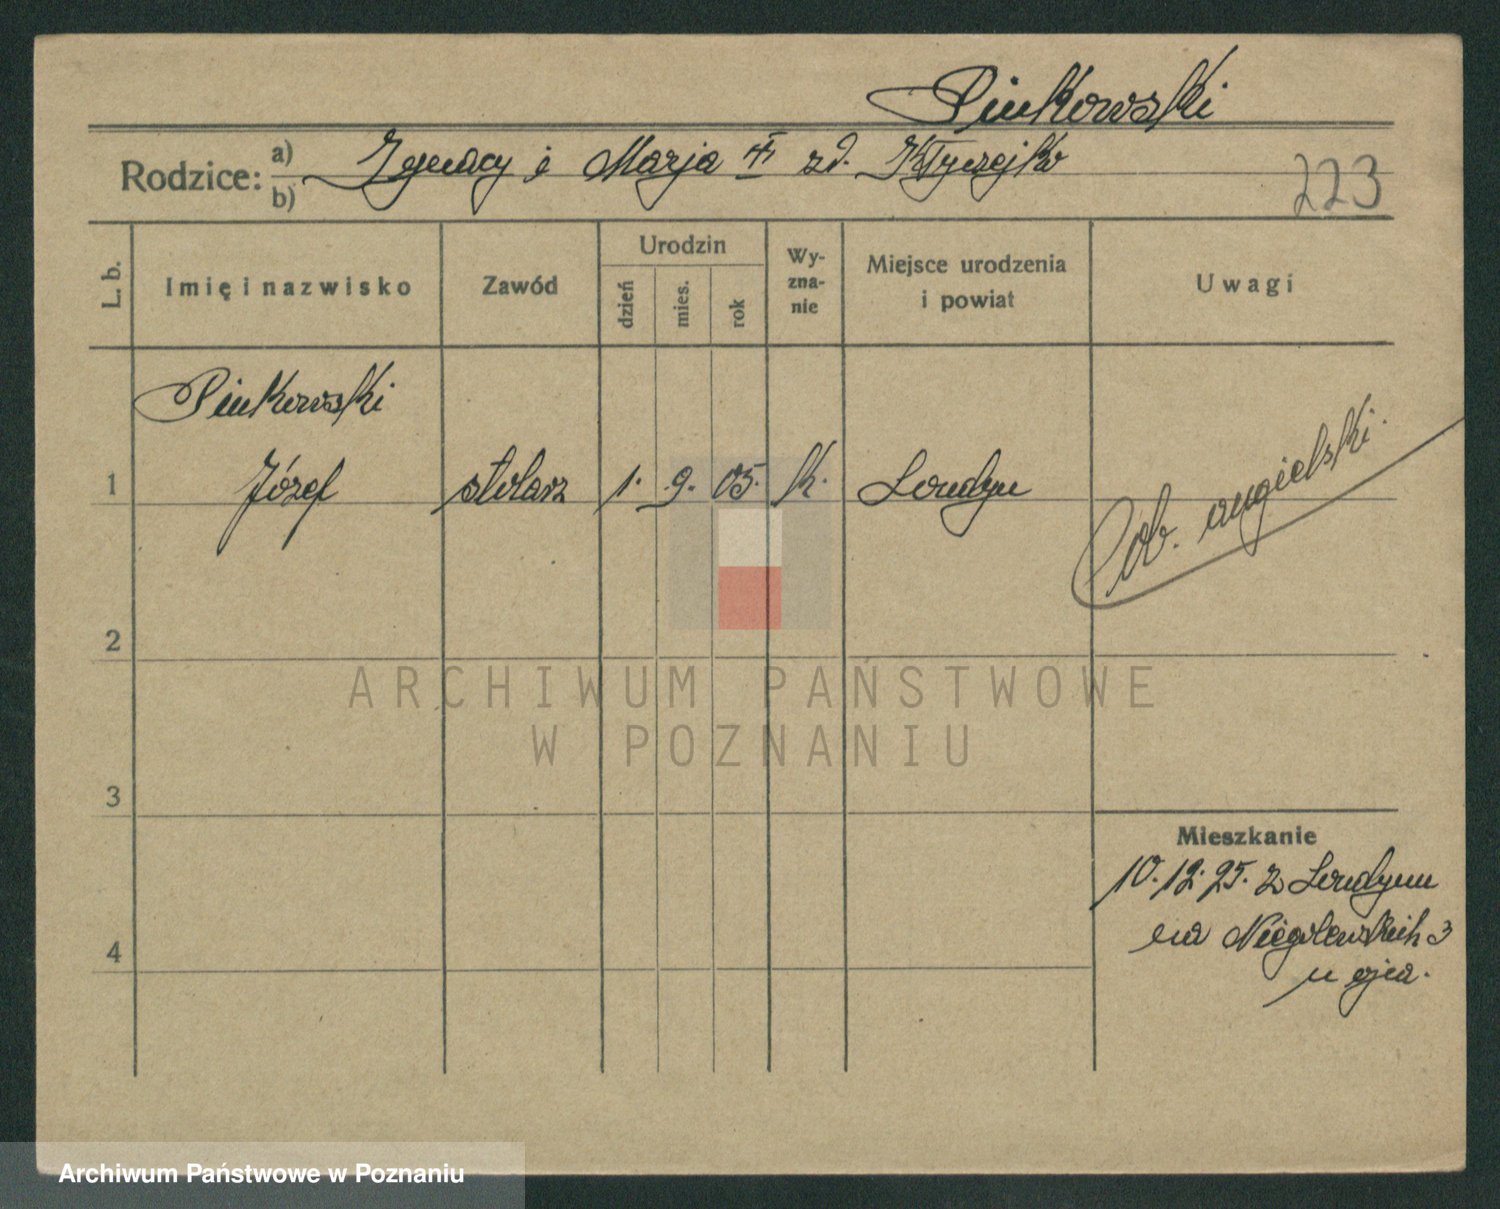 Pinkowski
Rodzice: a) b) Ignacy i Marja ✝ zd.
223
L. b. Imię i nazwisko Zawód Urodzin dzień mies. rok Wy-zna-nie Miejsce urodzenia i powiat Uwagi
Pinkowski
1 Józef stolarz 1. 9. 05. k. Londyn
ob. angielski.
2
ARCHIWUM PAŃSTWOWE
W POZNANIU
3
Mieszkanie
10.12.25. z Londynu
na Niegolewskich 3
u ojca.
4
Archiwum Państwowe w Poznaniu